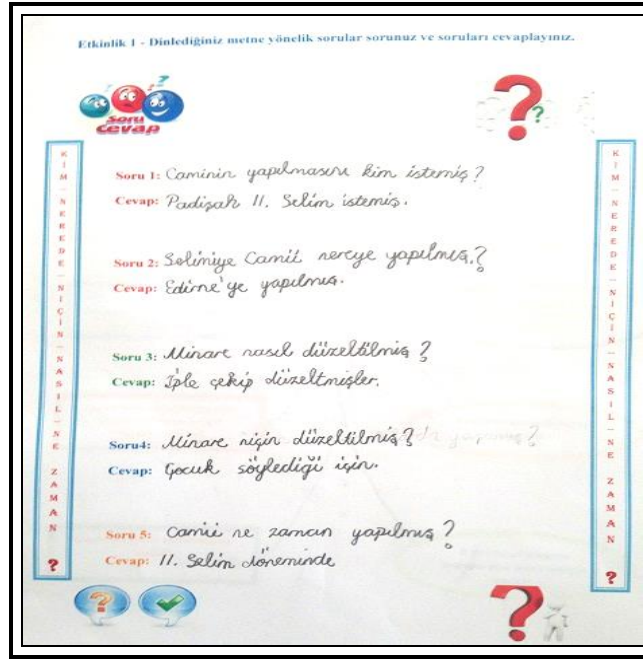 Etkinlik 1 - Dinlediğiniz metne yönelik sorular sorunuz ve soruları cevaplayınız.
Soru
cevap
KİM – NEREDE – NİÇİN – NASIL – NE ZAMAN ?
Soru 1: Caminin yapılmasını kim istemiş?
Cevap: Padişah II. Selim istemiş.
Soru 2: Selimiye Camii nereye yapılmış?
Cevap: Edirne'ye yapılmış.
Soru 3: Minare nasıl düzeltilmiş?
Cevap: İple çekip düzeltmişler.
Soru4: Minare niçin düzeltilmiş?
Cevap: Çocuk söylediği için.
Soru 5: Camii ne zaman yapılmış?
Cevap: II. Selim döneminde
KİM – NEREDE – NİÇİN – NASIL – NE ZAMAN ?